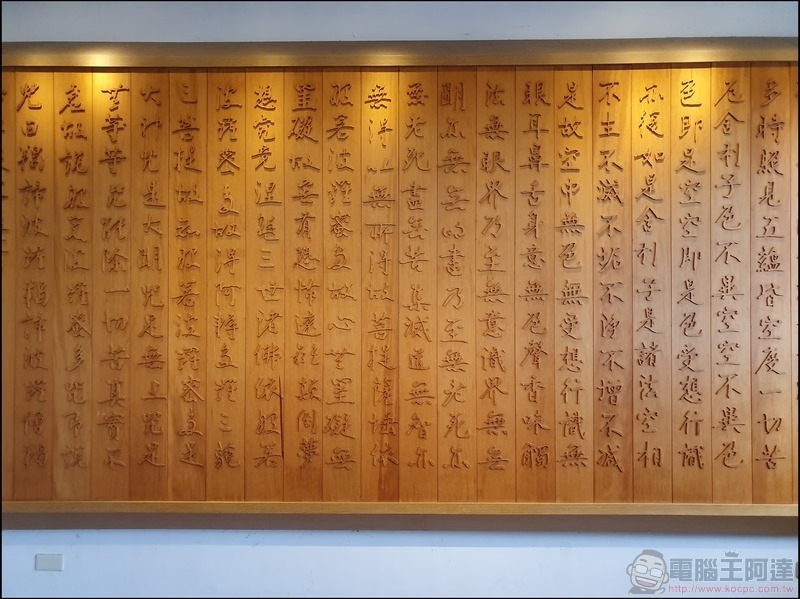 多時照見五蘊皆空度一切苦
厄舍利子色不異空空不異色
色即是空空即是色受想行識
亦復如是舍利子是諸法空相
不生不滅不垢不淨不增不減
是故空中無色無受想行識無
眼耳鼻舌身意無色聲香味觸
法無眼界乃至無意識界無無
明亦無無明盡乃至無老死亦
無老死盡無苦集滅道無智亦
無得以無所得故菩提薩埵依
般若波羅蜜多故心無罣礙無
罣礙故無有恐怖遠離顛倒夢
想究竟涅槃三世諸佛依般若
波羅蜜多故得阿耨多羅三藐
三菩提故知般若波羅蜜多是
大神咒是大明咒是無上咒是
無等等咒能除一切苦真實不
虛故說般若波羅蜜多咒即說
咒曰揭諦波羅揭諦波羅僧揭
電腦王阿達
http://www.kocpc.com.tw